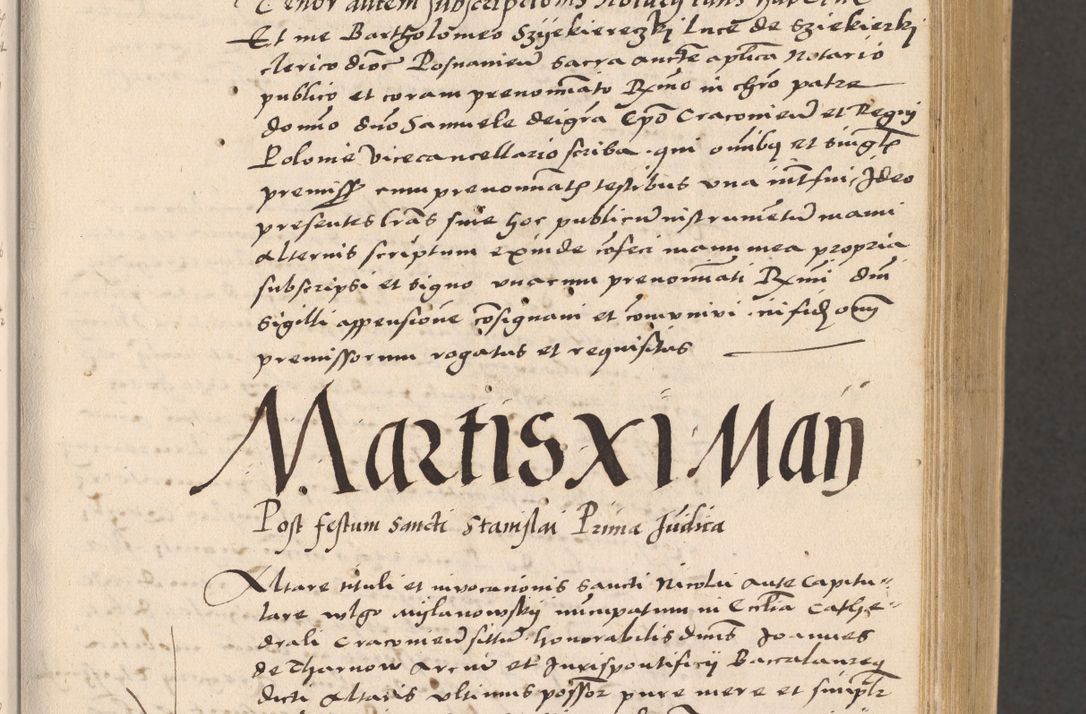 Tenor autem subscriptionis Notarij talis
Et me Bartholomeo Szyekiereczki Luce de Sziekierki
clerico dioc Posnanien sacra aucte aplica Notario
publico et coram prenominato Rxmo in chro patre
domino duo Samuele dei gra Epo Cracouien et Regni
Polonie Vicecancellario scriba qui omnibq et singlis
premiss cum prenominatis testibus una intfui, Ideo
presentes lras siue hoc publicum instrumentum manu
alterius scriptum exinde cofeci manu mea propria
subscripsi et signo una cum prenominati Rxmi dni
sigilli appensione cosignaui et comuniui in fidem omi
premissorum rogatus et requisitus
Martis xi Maij
Post festum sancti Stanislai Prima Judica
Altare tituli et inuocacionis sancti Nicolai ante Capitu-
lare wlgo nuncupatum in Ecclia Cathe-
drali Cracouien situm honorabilis dnus Joannes
de Tharnow Arcium et Jurispontificij Baccalaureq
dicti Altaris ultimus possor pure mere et simplr